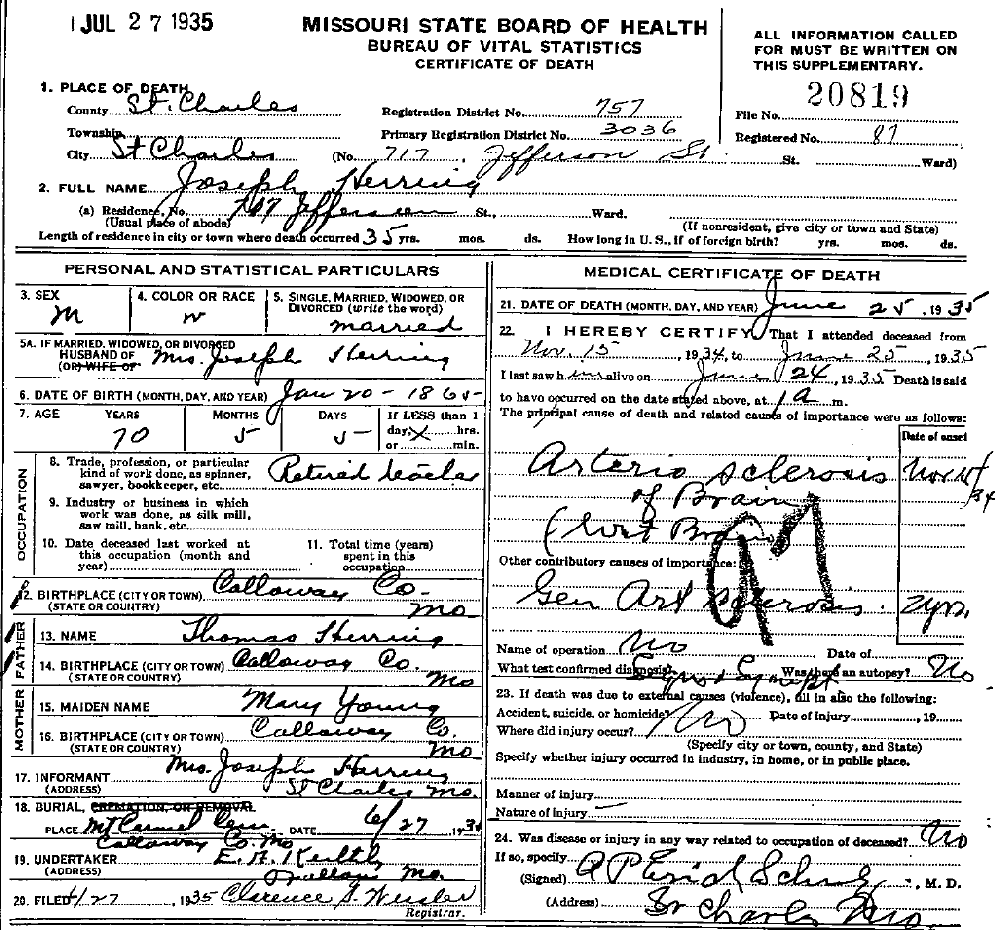 JUL 27 1935
MISSOURI STATE BOARD OF HEALTH
BUREAU OF VITAL STATISTICS
CERTIFICATE OF DEATH
ALL INFORMATION CALLED
FOR MUST BE WRITTEN ON
THIS SUPPLEMENTARY.
1. PLACE OF DEATH
County St. Charles Registration District No. 757
File No. 20819
Township Primary Registration District No. 3036
Registered No. 87
City St Charles (No. 717, Jefferson St. St. Ward)
2. FULL NAME Joseph Herring
(a) Residence, No. 717 Jefferson St., Ward.
(Usual place of abode) (If nonresident, give city or town and State)
Length of residence in city or town where death occurred 35 yrs. mos. ds. How long in U.S., if of foreign birth? yrs. mos. ds.
PERSONAL AND STATISTICAL PARTICULARS
3. SEX M
4. COLOR OR RACE W
5. SINGLE, MARRIED, WIDOWED, OR
DIVORCED (write the word)
married
5A. IF MARRIED, WIDOWED, OR DIVORCED
HUSBAND OF Mrs. Joseph Herring
(OR WIFE OF
6. DATE OF BIRTH (MONTH, DAY, AND YEAR) Jan 20 - 1865
7. AGE YEARS MONTHS DAYS If LESS than 1
70 5 5 day, X hrs.
or min.
OCCUPATION
8. Trade, profession, or particular
kind of work done, as spinner,
sawyer, bookkeeper, etc. Retired
9. Industry or business in which
work was done, as silk mill,
saw mill, bank, etc.
10. Date deceased last worked at
this occupation (month and
year)
11. Total time (years)
spent in this
occupation
12. BIRTHPLACE (CITY OR TOWN) Calloway Co.
(STATE OR COUNTRY) Mo
FATHER
13. NAME Thomas Herring
14. BIRTHPLACE (CITY OR TOWN) Calloway Co.
(STATE OR COUNTRY) Mo
MOTHER
15. MAIDEN NAME Mary Young
16. BIRTHPLACE (CITY OR TOWN) Calloway Co.
(STATE OR COUNTRY) Mo.
17. INFORMANT Mrs. Joseph Herring
(ADDRESS) St Charles Mo.
18. BURIAL, CREMATION, OR REMOVAL
PLACE Mt Carmel Cem DATE 6/27 1935
Calloway Co. Mo
19. UNDERTAKER E. A. Keithly
(ADDRESS) Mo.
20. FILED 6/27 1935 Clarence G.
Registrar.
MEDICAL CERTIFICATE OF DEATH
21. DATE OF DEATH (MONTH, DAY, AND YEAR) June 25, 1935
22. I HEREBY CERTIFY, That I attended deceased from
Nov. 15, 1934, to June 25, 1935
I last saw him alive on June 24, 1935 Death is said
to have occurred on the date stated above, at 1 a m.
The principal cause of death and related causes of importance were as follows:
Date of onset
Arterio sclerosis Nov 15/34
of Brain
97
Other contributory causes of importance:
Gen Art sclerosis. 2 yrs.
Name of operation No Date of
What test confirmed diagnosis? Signs & Sympt Was there an autopsy? No
23. If death was due to external causes (violence), fill in also the following:
Accident, suicide, or homicide? No Date of injury , 19
Where did injury occur?
(Specify city or town, county, and State)
Specify whether injury occurred in industry, in home, or in public place.
Manner of injury
Nature of injury —
24. Was disease or injury in any way related to occupation of deceased? No
If so, specify
(Signed) A P Erich Schulz, M. D.
(Address) St Charles Mo.